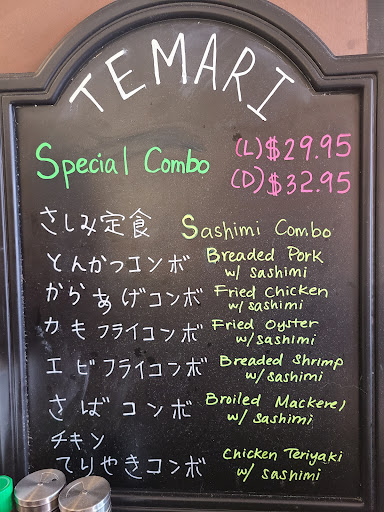 TEMARI
Special Combo (L) $29.95
(D) $32.95
さしみ定食 Sashimi Combo
とんかつコンボ Breaded Pork
w/ sashimi
からあげコンボ Fried Chicken
w/ sashimi
カキフライコンボ Fried Oyster
w/ sashimi
エビフライコンボ Breaded Shrimp
w/ sashimi
さばコンボ Broiled Mackerel
w/ sashimi
チキン
てりやきコンボ Chicken Teriyaki
w/ sashimi